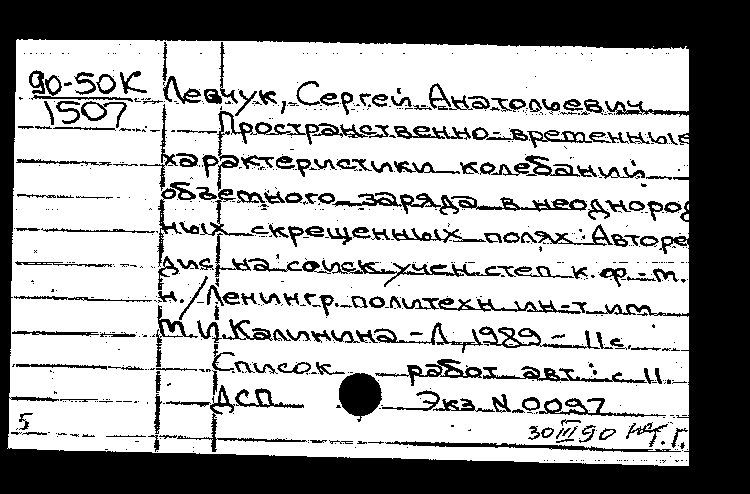 90-50К
1507
Левчук, Сергей Анатольевич
Пространственно-временные
характеристики колебаний
объемного заряда в неоднород
ных скрещенных полях: Авторе
дис на соиск. учен. степ к. ф.-м.
н. / Ленингр. политехн ин-т им
М. И. Калинина - Л, 1989 - 11 с.
Список работ авт.: с 11.
ДСП. Экз N 0097
5
30 III 90 Т. Г.